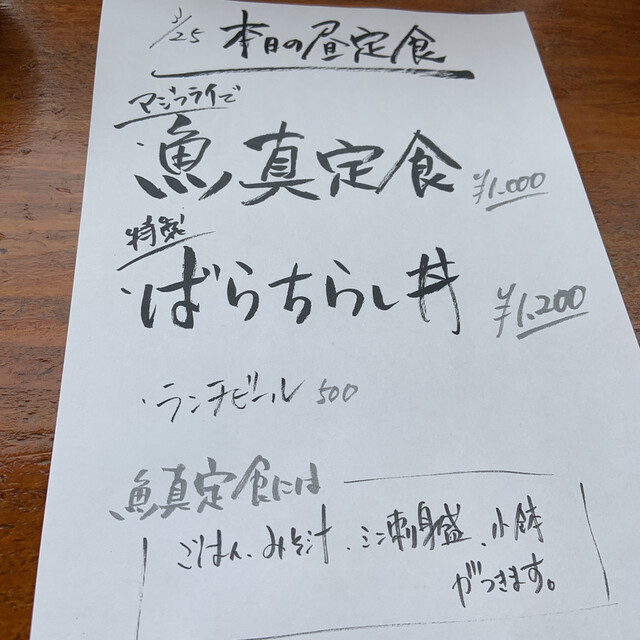 3/25 本日の昼定食
アジフライで
魚真定食 ¥1.000
特製
ばらちらし丼 ¥1.200
・ランチビール 500
魚真定食には
ごはん、みそ汁、ミニ刺身盛、小鉢
がつきます。